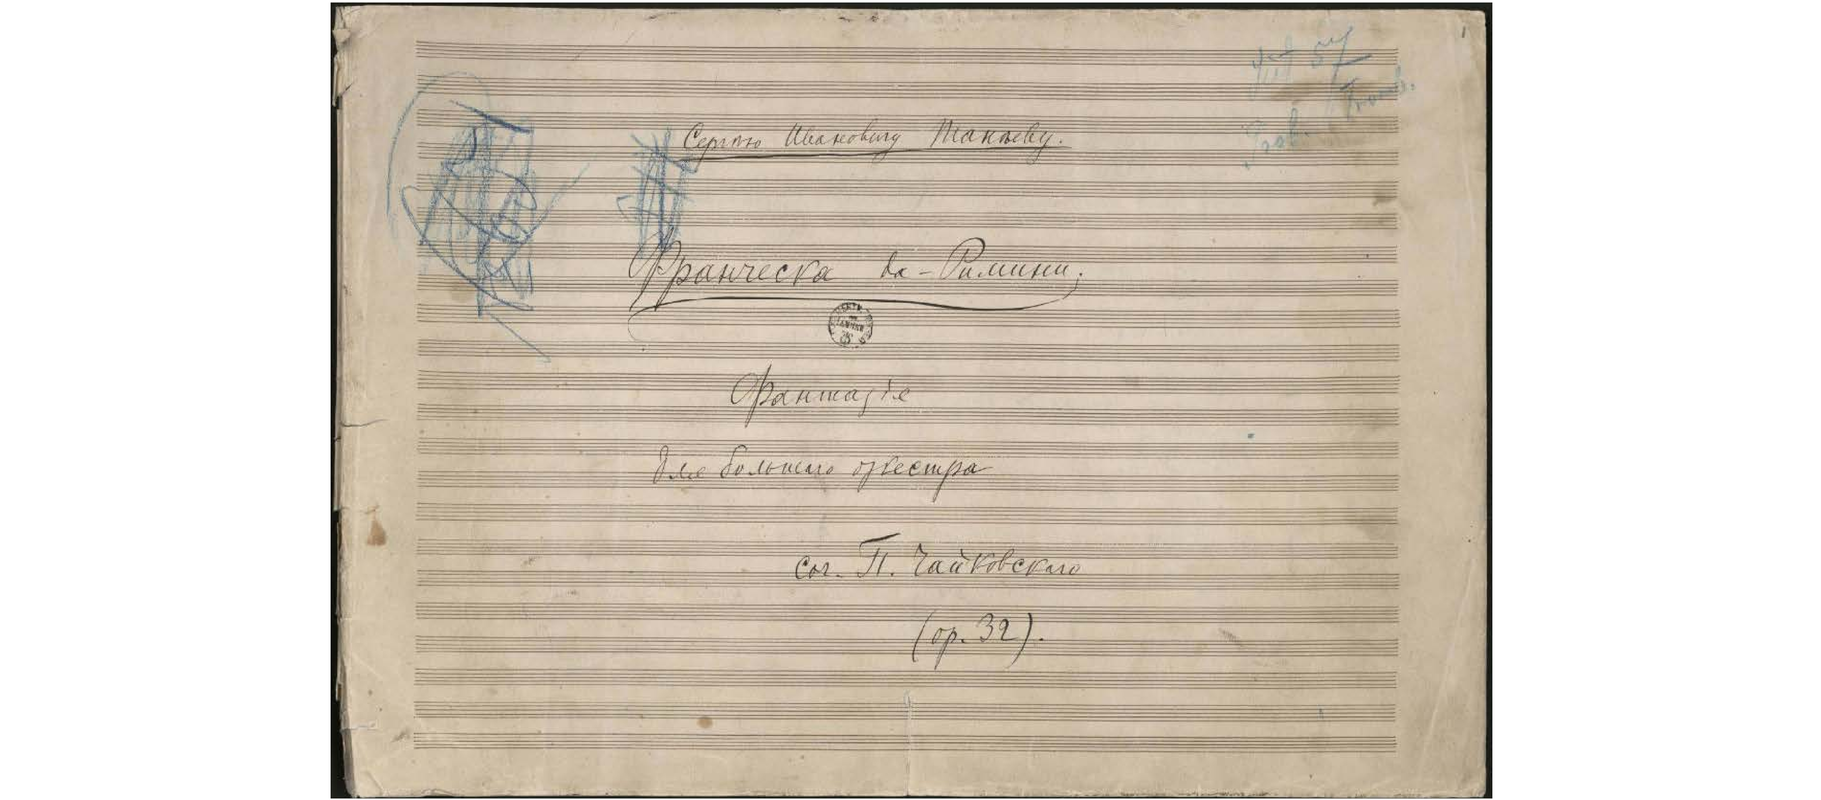 Сергѣю Ивановичу Танѣеву.
Франческа да-Римини.
Фантазія
для большаго оркестра
соч. П. Чайковскаго
(op. 32).